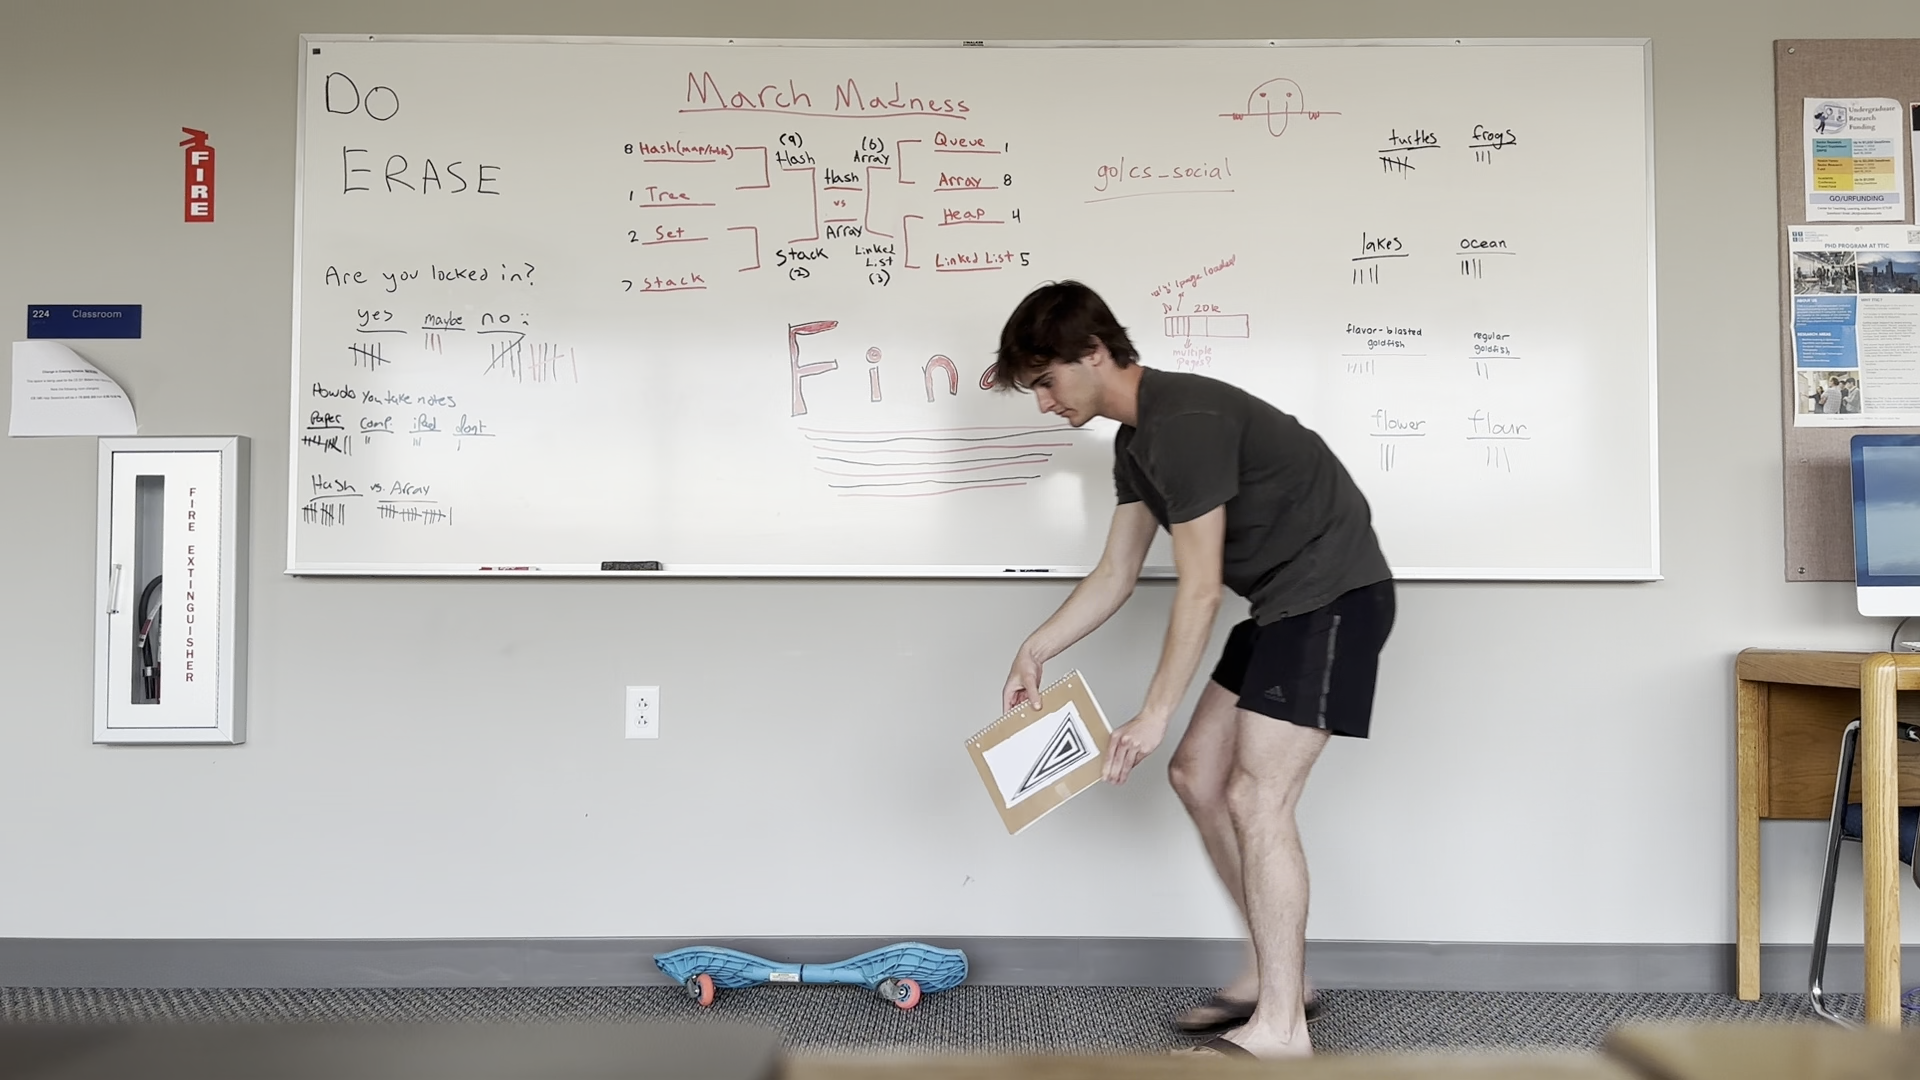 DO
ERASE
Are you locked in?
yes maybe no :
How do you take notes
Paper comp. iPad dont
Hash vs. Array
March Madness
8 Hash(map/table)
1 Tree
2 Set
7 Stack
(9)
Hash
Stack
(2)
Hash
vs
Array
(6)
Array
Linked
List
(3)
Queue 1
Array 8
Heap 4
Linked List 5
Fin
go/cs_social
20k
multiple
pages?
turtles frogs
lakes ocean
flavor-blasted
goldfish
regular
goldfish
flower flour
FIRE
224 Classroom
FIRE EXTINGUISHER
Undergraduate
Research
Funding
GO/URFUNDING
PHD PROGRAM AT TTIC